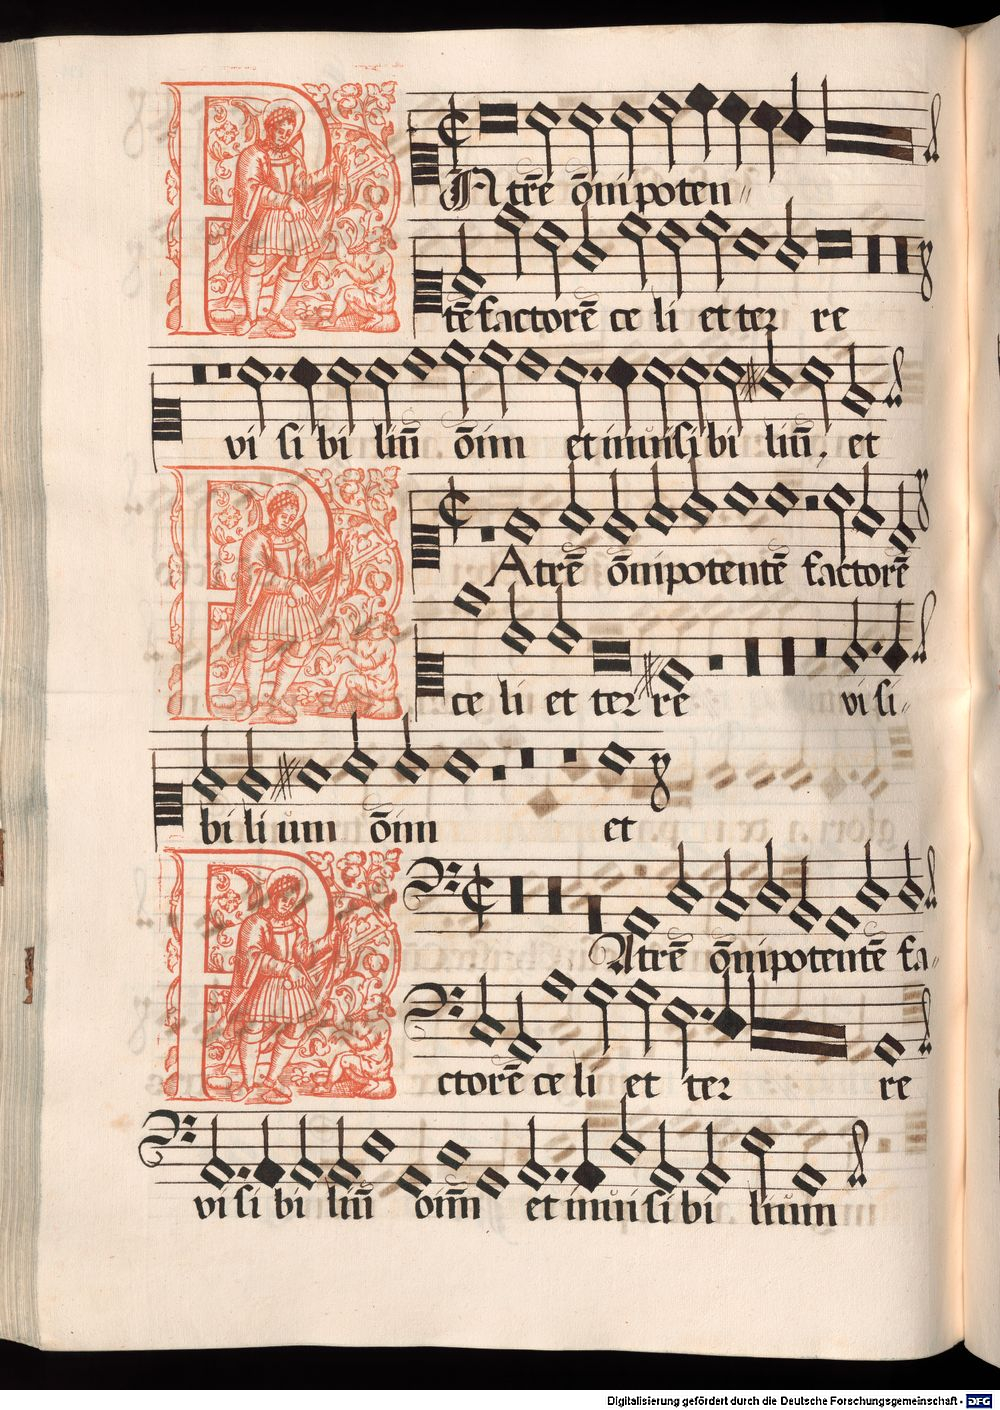 PAtrē ōnipoten〃
tē factorē celi et terꝛ re
visibiliū ōim et inuisibiliū, et
PAtrē ōnipotentē factorē
celi et terꝛ re visi〃
bilium ōim et
PAtrē ōnipotentē fa〃
ctorē celi et terꝛ re
visibiliū oim̄ et inuisibilium
Digitalisierung gefördert durch die Deutsche Forschungsgemeinschaft - DFG